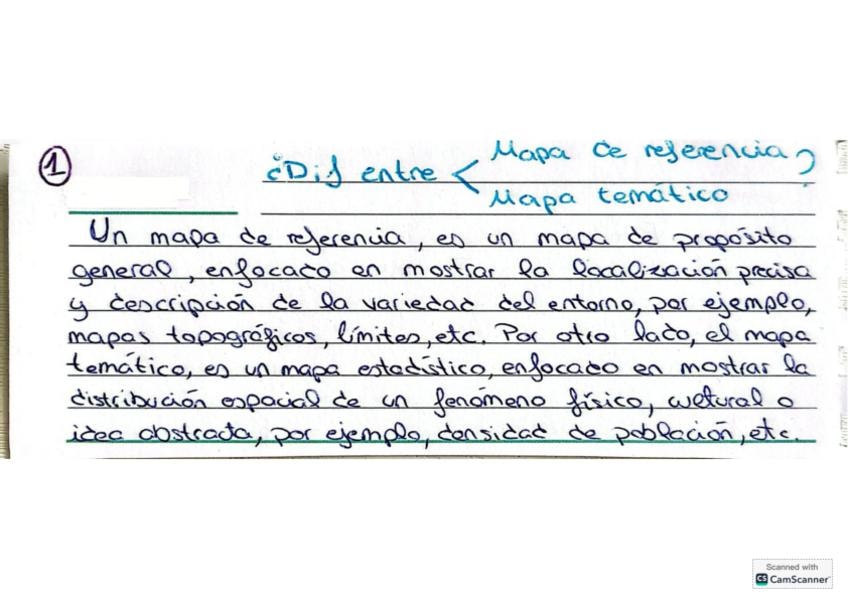 1
¿Dif entre < Mapa de referencia ?
Mapa temático
Un mapa de referencia, es un mapa de propósito
general, enfocado en mostrar la localización precisa
y descripción de la variedad del entorno, por ejemplo,
mapas topográficos, límites, etc. Por otro lado, el mapa
temático, es un mapa estadístico, enfocado en mostrar la
distribución espacial de un fenómeno físico, cultural o
idea abstracta, por ejemplo, densidad de población, etc.
Scanned with
CS CamScanner